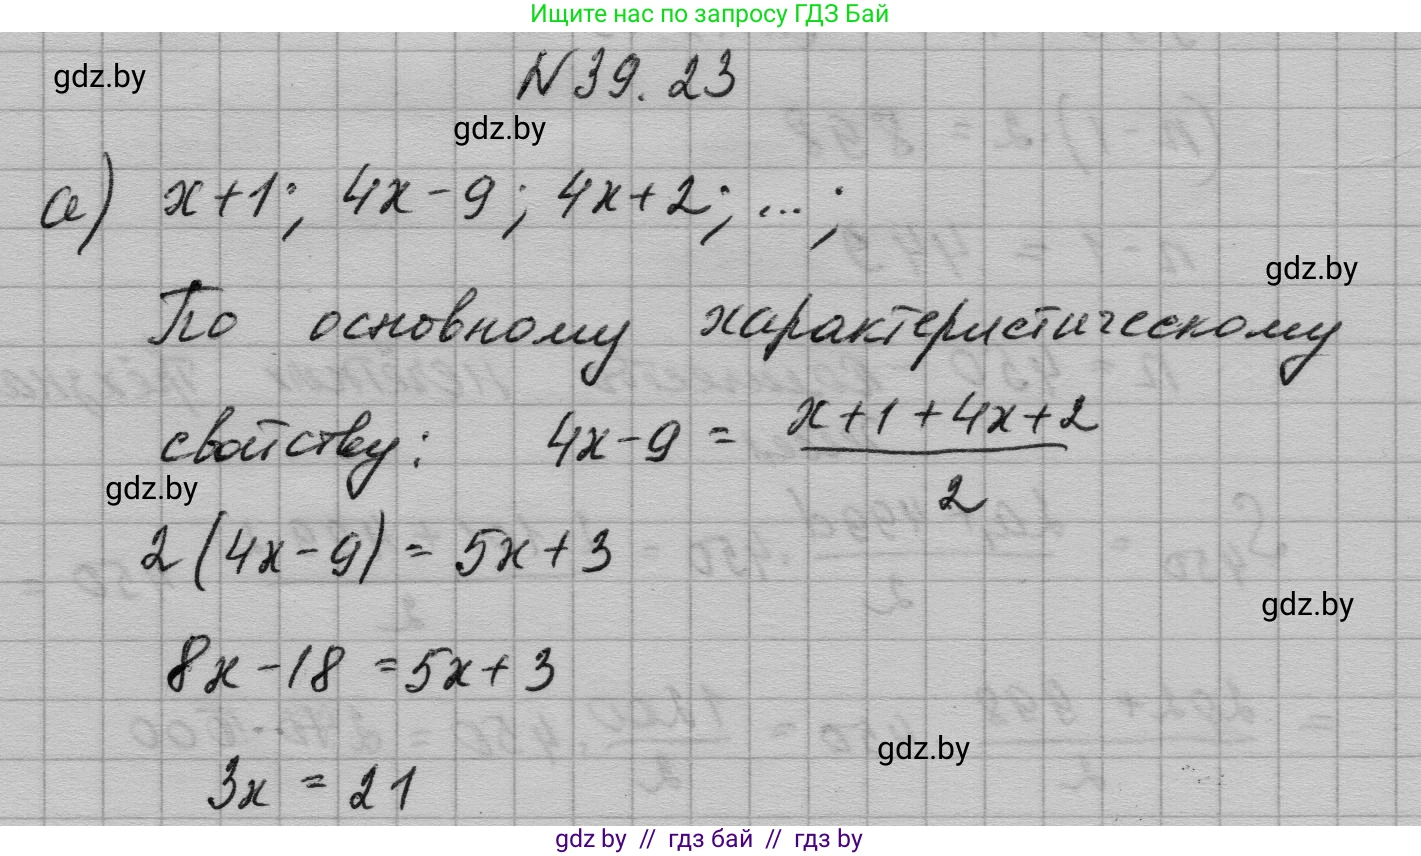 Ищите нас по запросу ГДЗ Бай
N 39.23
gdz.by
gdz.by
а) x+1; 4x-9; 4x+2; ...;
gdz.by
По основному характеристическому
свойству: 4x-9 = (x+1+4x+2)/2
gdz.by
2(4x-9) = 5x+3
gdz.by
8x-18 = 5x+3
gdz.by
3x = 21
gdz by // гдз бай // гдз by